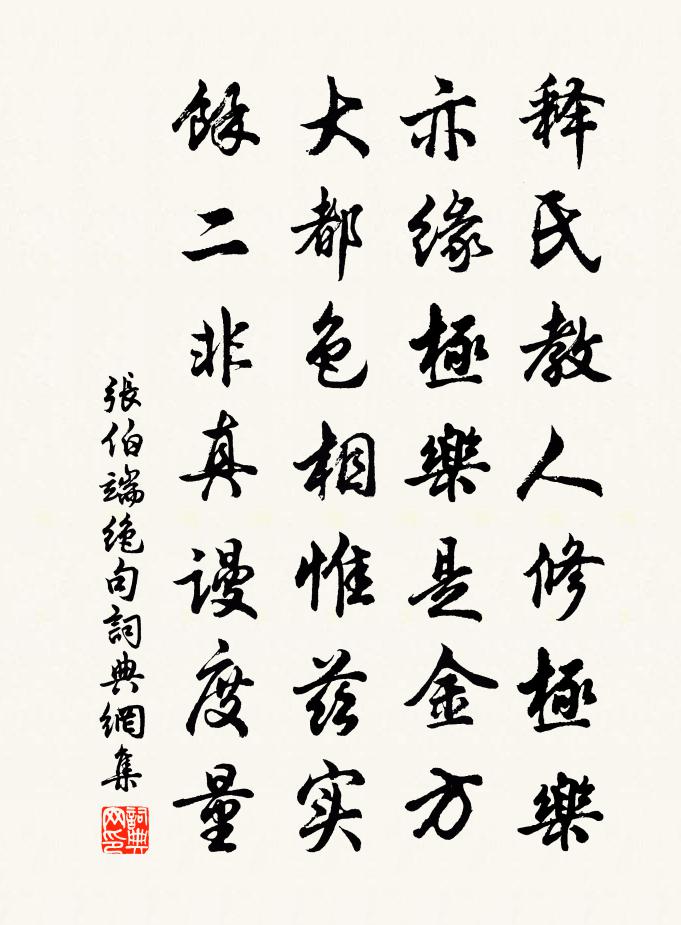 释氏教人修極樂
亦缘極樂是金方
大都色相惟兹实
餘二非真謾度量
張伯端绝句詞典網集
詞典网印